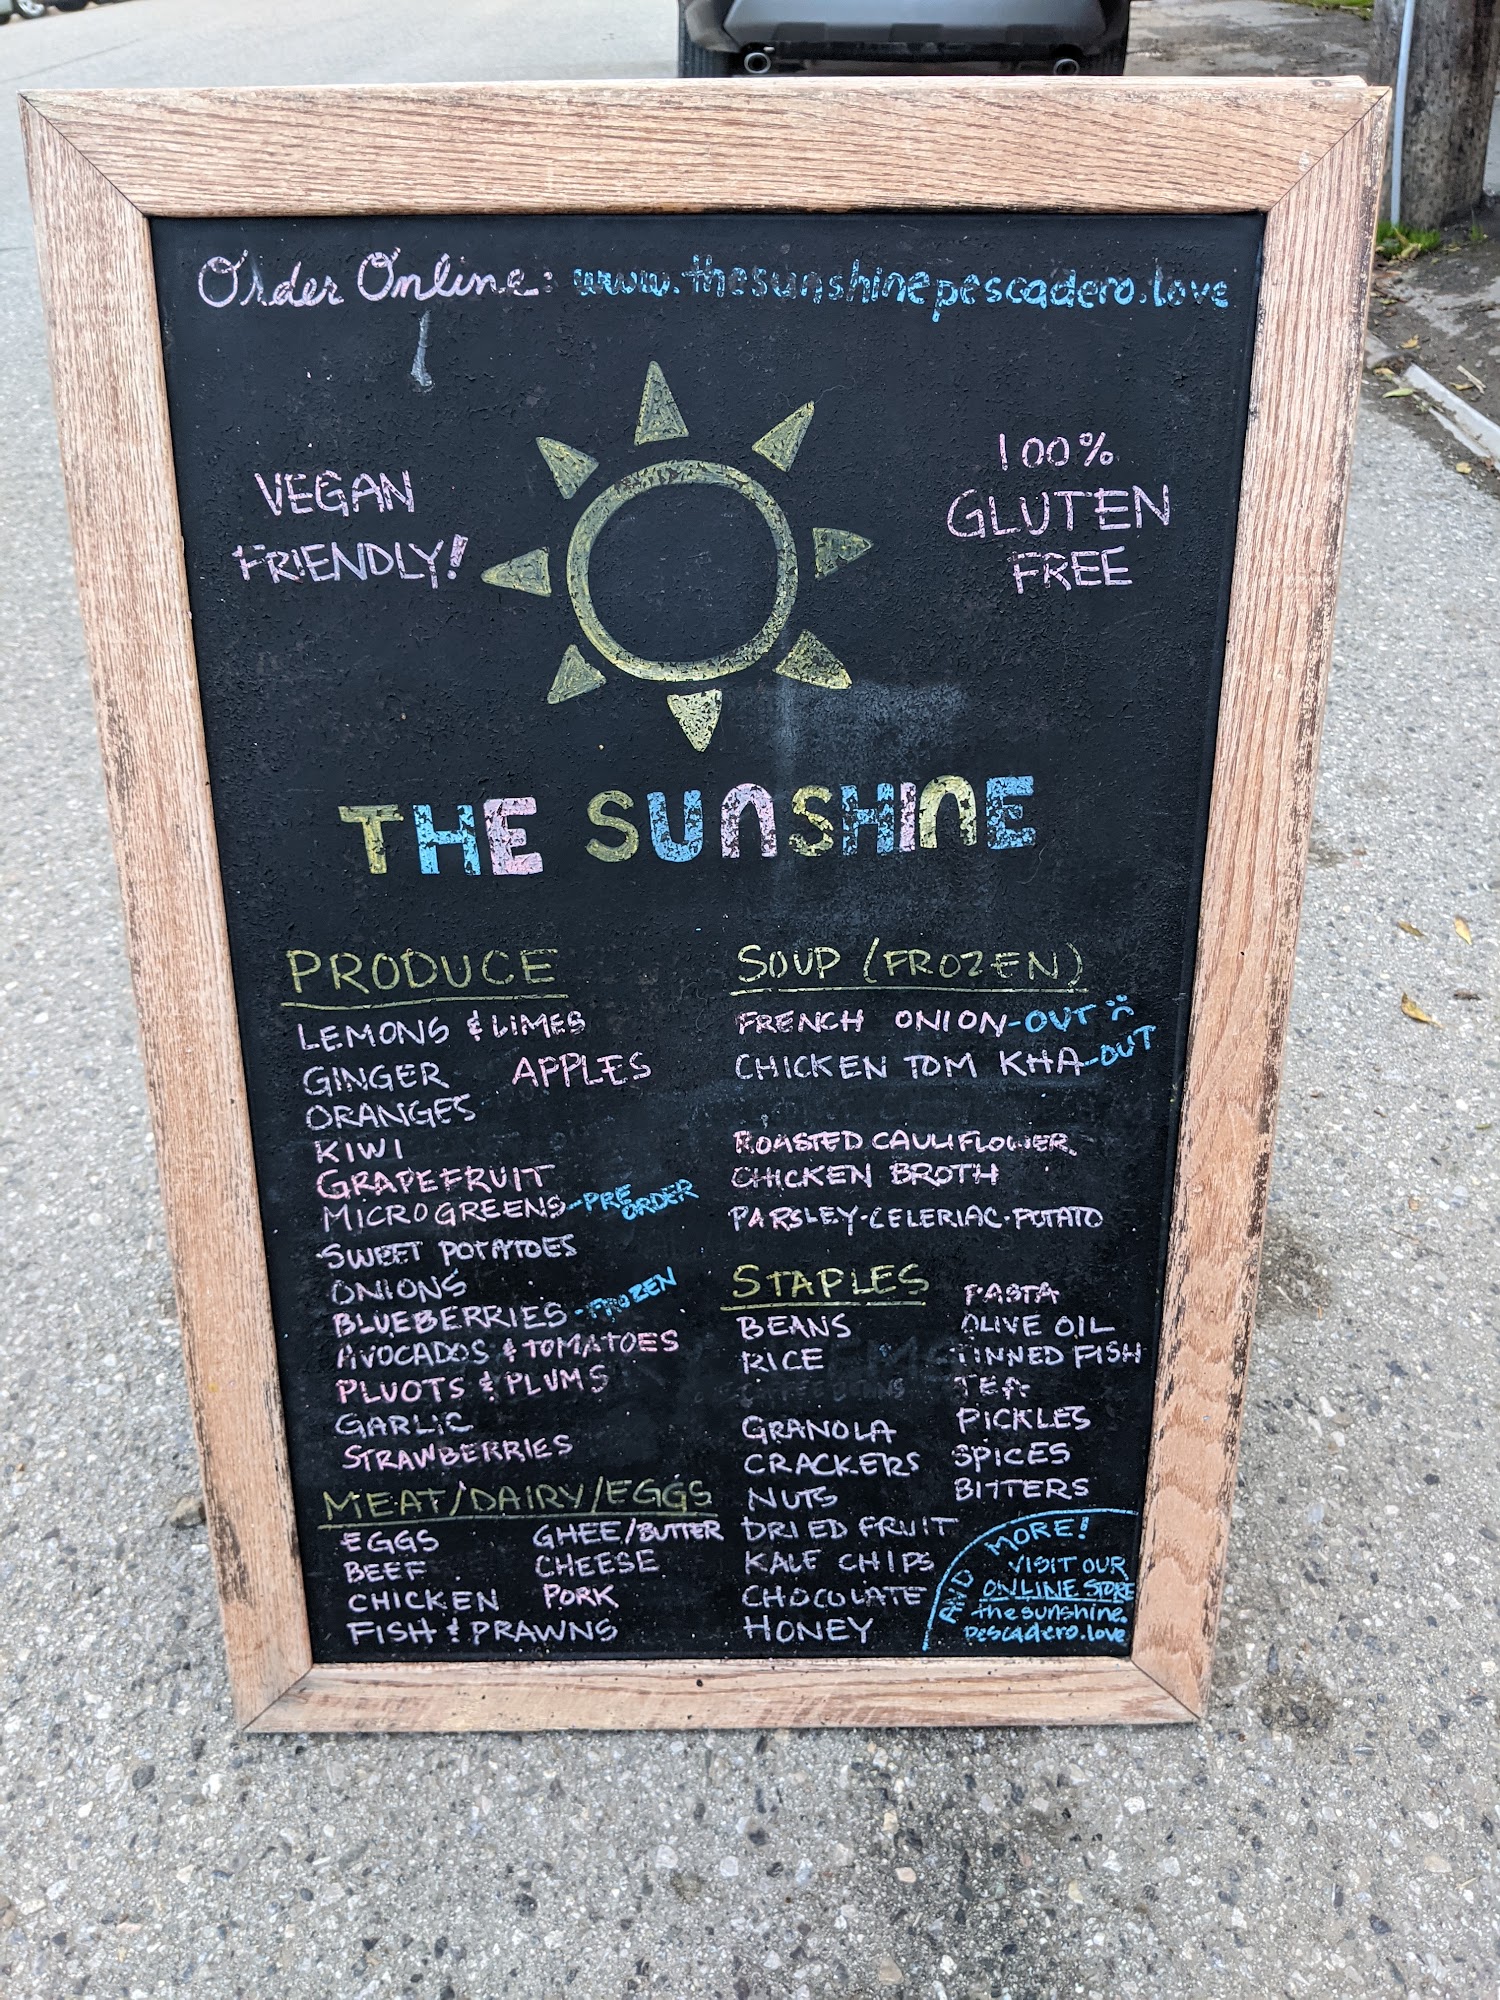 Order Online: www.thesunshinepescadero.love
VEGAN
FRIENDLY!
100%
GLUTEN
FREE
THE SUNSHINE
PRODUCE
LEMONS & LIMES
GINGER APPLES
ORANGES
KIWI
GRAPEFRUIT
MICROGREENS-PRE ORDER
SWEET POTATOES
ONIONS
BLUEBERRIES-FROZEN
AVOCADOS & TOMATOES
PLUOTS & PLUMS
GARLIC
STRAWBERRIES
MEAT/DAIRY/EGGS
EGGS GHEE/BUTTER
BEEF CHEESE
CHICKEN PORK
FISH & PRAWNS
SOUP (FROZEN)
FRENCH ONION-OUT
CHICKEN TOM KHA-OUT
ROASTED CAULIFLOWER
CHICKEN BROTH
PARSLEY-CELERIAC-POTATO
STAPLES
BEANS
RICE
GRANOLA
CRACKERS
NUTS
DRIED FRUIT
KALE CHIPS
CHOCOLATE
HONEY
PASTA
OLIVE OIL
TINNED FISH
TEA
PICKLES
SPICES
BITTERS
AND MORE!
VISIT OUR
ONLINE STORE
thesunshine.
pescadero.love